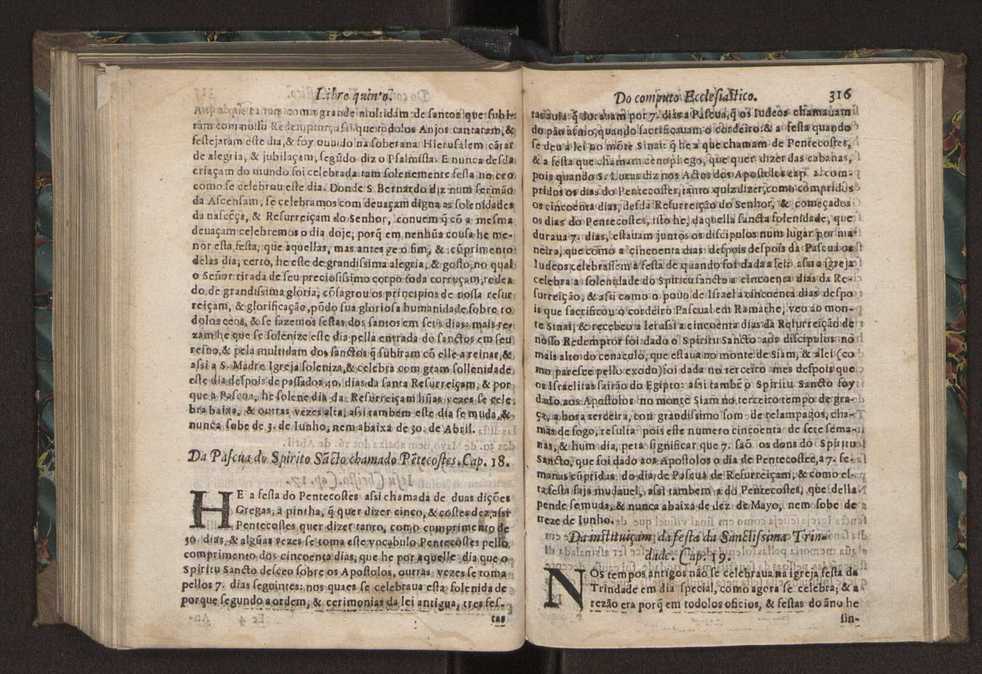 Libro quinto.
grande multidam de santos que subi-
ram com nosso Redemptor, assi que todolos Anjos cantaram, &
festejaram este dia, & foy ouuido na soberana Hierusalem cãtar
de alegria, & jubilaçam, segũdo diz o Psalmista. E nunca desda
criaçam do mundo foi celebrada tam solenemente festa no ceo
como se celebrou este dia. Donde S. Bernardo diz num sermão
da Ascensam, se celebramos com deuaçam digna as solenidades
da nascẽça, & Resurreiçam do Senhor, conuem q̃ cõ a mesma
deuaçam celebremos o dia doje, porq̃ em nenhũa cousa he me-
nor esta festa, que aquellas, mas antes he o fim, & cũprimento
delas dia, certo, he este de grandissima alegria, & gosto, no qual
o Señor tirada de seu preciosissimo corpo toda corruçam, rodea
do de grandissima gloria, cõsagrou os principios de nossa resur
reiçam, & glorificação, põdo sua gloriosa humanidade sobre to
dolos ceos, & se fazemos festas dos santos em seus dias, mais re-
zam he que se solenize este dia pella entrada do sanctos em seu
reino, & pela multidam dos sanctos q̃ subiram cõ elle a reinar, &
assi a S. Madre Igreja soleniza, & celebra com gram sollenidade
este dia despois de passados 40. dias da santa Resurreiçam, & por
que a Pascoa, he solene dia da Resurreiçam hũas vezes se cele
bra baixa, & outras vezes alta, assi tambem este dia se muda, &
nunca sobe de 3. de Iunho, nem abaixa de 30. de Abril.
Da Pascua do Spirito Sãcto chamado Pẽtecostes. Cap. 18.
HE a festa do Pentecostes assi chamada de duas dições
Gregas, a pintha, q̃ quer dizer cinco, & costes dez, assi
Pentecostes quer dizer tanto, como cumprimento de
50. dias, & algũas vezes se toma este vocabulo Pentecostes pello
comprimento dos cincoenta dias, que he por aquelle dia que o
Spiritu Sancto desceo sobre os Apostolos, outras vezes se toma
pellos 7. dias seguintes: nos quaes se celebraua esta solenida de
porque segundo a ordem, & cerimonias da lei antigua, tres fes-
tas
Do computo Ecclesiastico. 316
tas auia q̃ durauam por 7. dias a Pascua, q̃ os Iudeos chamauam
do pão asmo, quando sacrificauam o cordeiro: & a festa quando
se deu a lei no mõte Sinai: q̃ he a que chamam de Pentecostes,
& a festa que chamam cenophego, que quer dizer das cabanas,
pois quando S. Lucas diz nos Actos dos Apostolos cap. 2. com-
pridos os dias do Pentecostes, tanto quiz dizer, como compridos
os cincoenta dias, desda Resurreição do Senhor, & começados
os dias do Pentecostes, isto he, daquella sancta solenidade, que
duraua 7. dias, estauam juntos os discipulos num lugar por ma-
neira, que como a cincoenta dias despois despois da Pascua os
Iudeos celebrassem a festa de quando foi dada a lei: assi a igreja
celebra a solenidade do Spiritu sancto a cincoenta dias da Re-
surreição, & assi como o pouo de Israel a cincoenta dias despo
is que sacrificou o cordeiro Pascual em Ramathe, veo ao mon-
te Sinai, & recebeo a lei: assi a cincoenta dias da Resurreição de
nosso Redemptor foi dado o Spiritu Sancto aos discipulos no
mais alto do cenaculo, que estaua no monte de Siam, & a lei (co
mo paresce pello exodo) foi dada no terceiro mes despois que
os Israelitas sairão do Egipto: assi tambẽ o Spiritu Sancto foy
dado aos Apostolos no monte Siam no terceiro tempo de gra-
ça, a hora terceira, con grandissimo som de relampagos, cha-
mas de fogo, resulta pois este numero cincoenta de sete sema-
nas, & hum dia, pera significar que 7. saõ os dons do Spiritu
Sancto, que foi dado aos Apostolos o dia de Pentecostes, a 7. se-
manas cũpridas do dia de Pascua de Resurreiçam; & como es-
ta festa seja mudauel, assi tambem a do Pentecostes, que della
pende se muda, & nunca abaixa de dez de Mayo, nem sobe de
treze de Iunho.
Da instituiçam da festa da Sanctissima Trin-
dade. Cap. 19.
NOs tempos antigos não se celebraua na igreja festa da
Trindade em dia special, como agora se celebra; & a
rezão era porq̃ em todolos oficios, & festas do ãno he
sin-